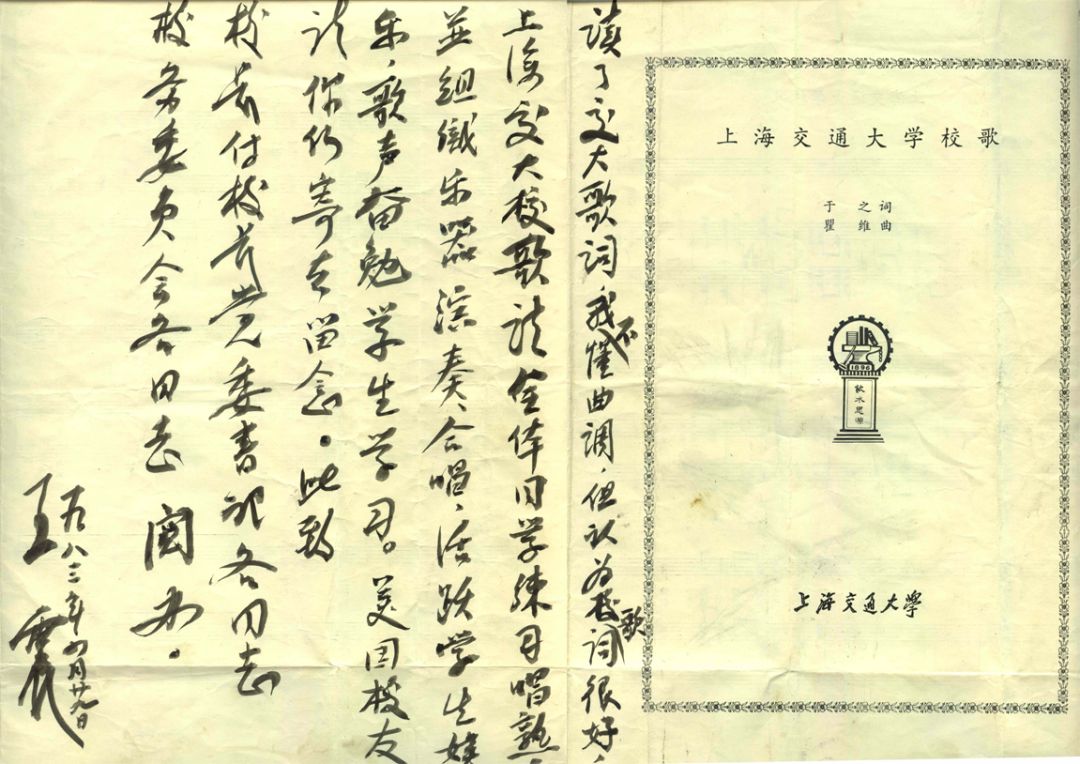 上海交通大学校歌
于之词
瞿维曲
1896
饮水思源
上海交通大學
读了交大歌词,我不懂曲调,但认为校歌词很好,
上海交大校歌请全体同学练习唱熟,
並组織乐器演奏、合唱,活跃学生娱
乐,歌声奋勉学生学习。美国校友
请你们寄去留念。此致
校长付校长党委书记各同志
校务委员会各同志 阅办。
王震
一九八三年四月廿九日